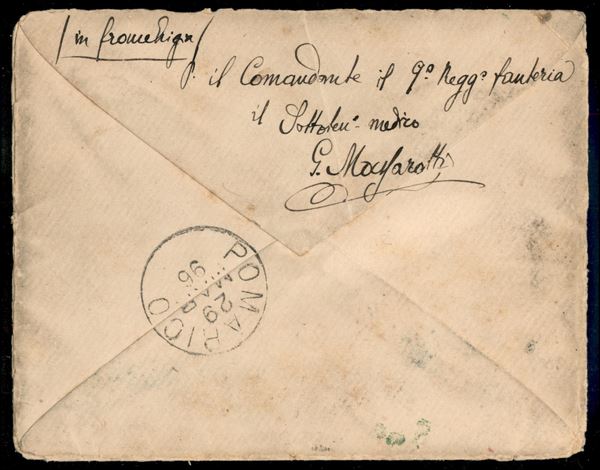 / in franchigia /
p. il Comandante il 9° Regg° fanteria
il Sottoten.e medico
G. Massarotti
POMARICO
29
MAR
96